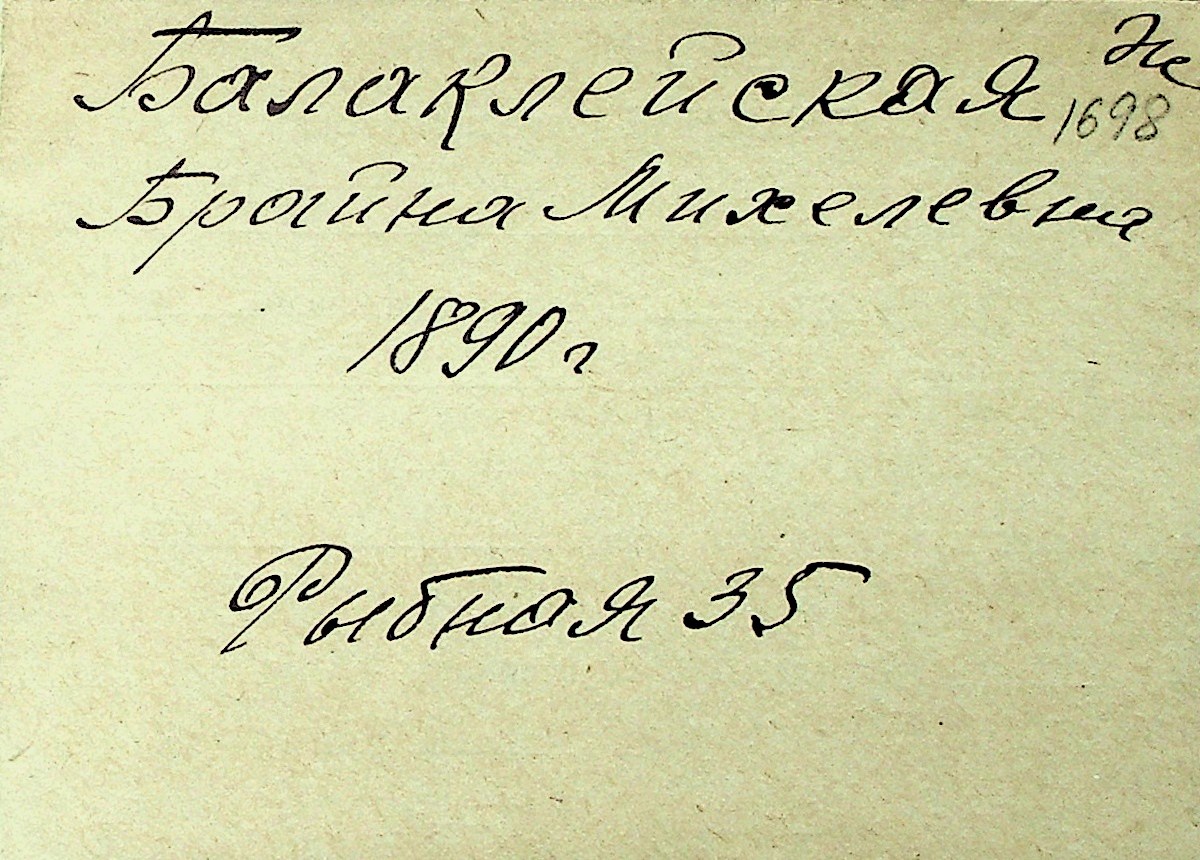 Балаклейская Ж
1698
Брайна Михелевна
1890 г
Рыбная 35